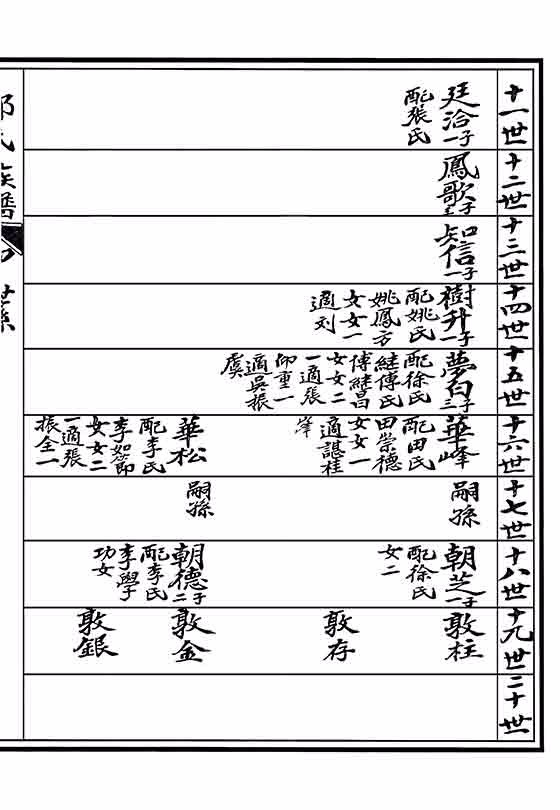 十一世
廷洽
一子
配張氏
十二世
鳳歌
子
十三世
知信
一子
十四世
樹升
一子
配姚氏
姚鳳方
女女一
適刘
十五世
夢白
三子
配徐氏
継傅氏
傅継昌
女女二
一適張
仰重一
適吳振
虞
十六世
華峰
配田氏
田崇德
女女一
適諶桂
峯
華松
配李氏
李如節
女女二
一適張
振全一
十七世
嗣孫
嗣孫
十八世
朝芝
一子
配徐氏
女二
朝德
二子
配李氏
李學子
功女
十九世
敦柱
敦存
敦金
敦銀
二十世
氏族譜
世系